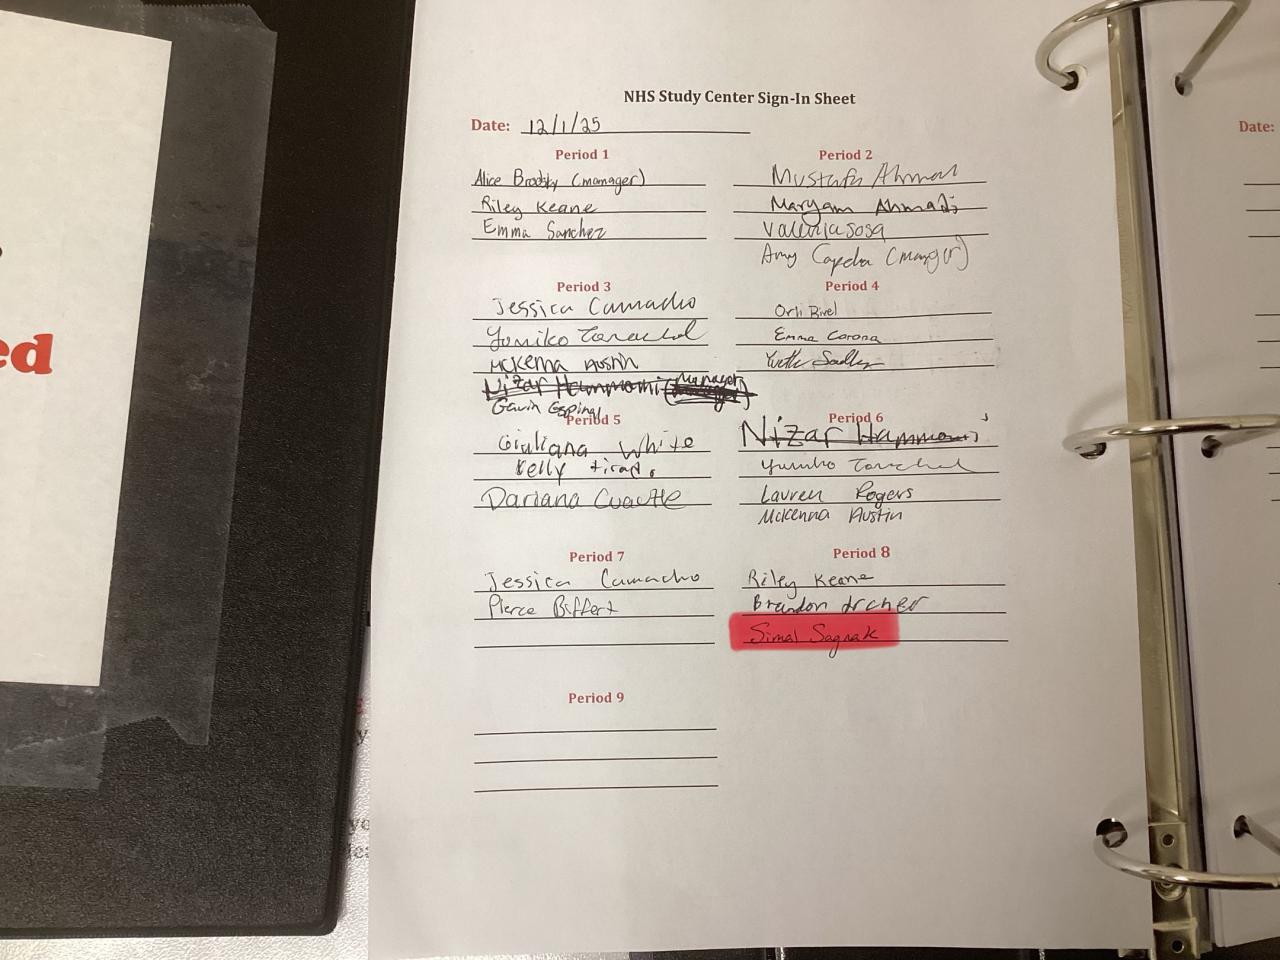 NHS Study Center Sign-In Sheet
Date: 12/1/25
Date:
Period 1
Alice Brodsky (manager)
Riley Keane
Emma Sanchez
Period 2
Mustafa Ahmad
Maryam Ahmadi
Valeria Sosa
Amy (manger)
Period 3
Jessica Camacho
Yumiko
McKenna Austin
Nizar Hammami (manager)
Gavin Espinal
Period 4
Orli
Emma Corona
Yvette
Period 5
Giuliana White
Kelly
Dariana Cuautle
Period 6
Nizar Hammami
Yumiko
Lauren Rogers
McKenna Austin
Period 7
Jessica Camacho
Pierce Biffert
Period 8
Riley Keane
Brandon Archer
Simal Sagnak
Period 9
ed